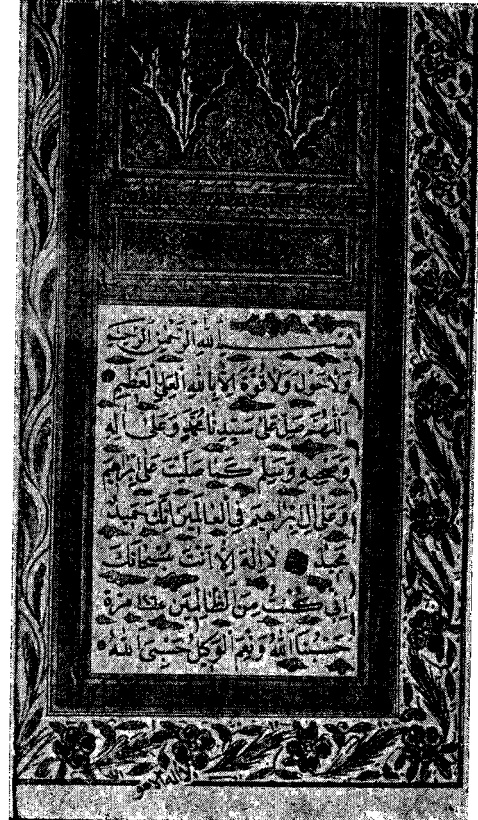 بسم الله الرحمن الرحيم
ولاحول ولا قوة الا بالله العلي العظيم
اللهم صل على سيدنا محمد وعلى اله
وصحبه وسلم كما صليت على ابراهيم
وعلى ال ابراهيم في العالمين انك حميد
مجيد لا اله الا انت سبحانك
اني كنت من الظالمين مرة
حسبنا الله ونعم الوكيل حسبي الله